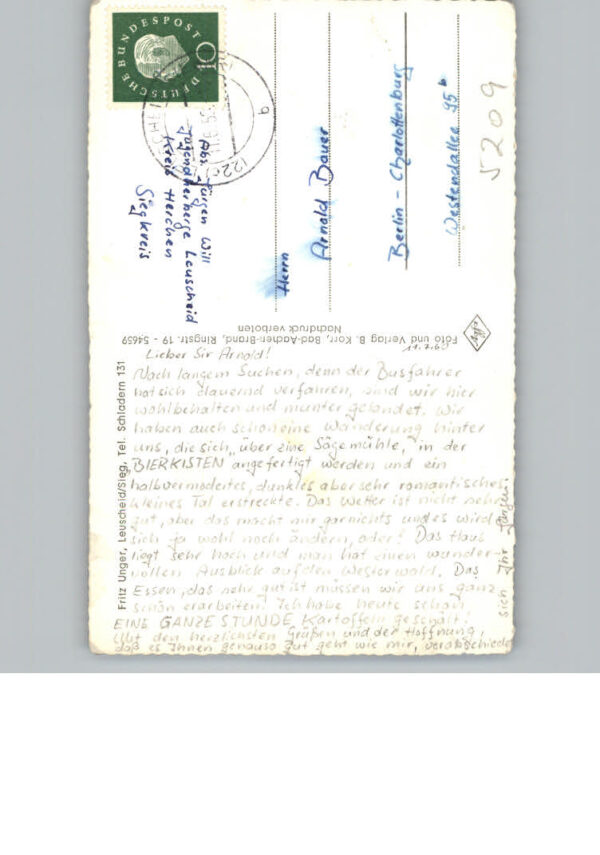 DEUTSCHE BUNDESPOST
10
(22c)
b
Abs. Jürgen Will
Jugendherberge Leuscheid
Kreis Herchen
Siegkreis
Herrn
Arnold Bauer
Berlin - Charlottenburg
Westendallee 95 b
5209
Foto und Verlag B. Korr, Bad-Aachen-Brand, Ringstr. 19 - 54659
Nachdruck verboten
Fritz Unger, Leuscheid/Sieg, Tel. Schladern 131
Lieber Sir Arnold!
Nach langem Suchen, denn der Busfahrer
hat sich dauernd verfahren, sind wir hier
wohlbehalten und munter gelandet. Wir
haben auch schon eine Wanderung hinter
uns, die sich „über eine Sägemühle," in der
„BIERKISTEN angefertigt werden und ein
halbvermodertes, dunkles aber sehr romantisches
kleines Tal erstreckte. Das Wetter ist nicht sehr
gut, aber das macht mir garnichts und es wird
sich ja wohl noch ändern, oder? Das Haus
liegt sehr hoch und man hat einen wunder-
vollen Ausblick auf den Westerwald. Das
Essen, das sehr gut ist müssen wir uns ganz
schön erarbeiten. Ich habe heute schon
EINE GANZE STUNDE Kartoffeln geschält!
Mit den herzlichsten Grüßen und der Hoffnung,
daß es Ihnen genauso gut geht wie mir, verabschiedet
sich Ihr Jürgen.